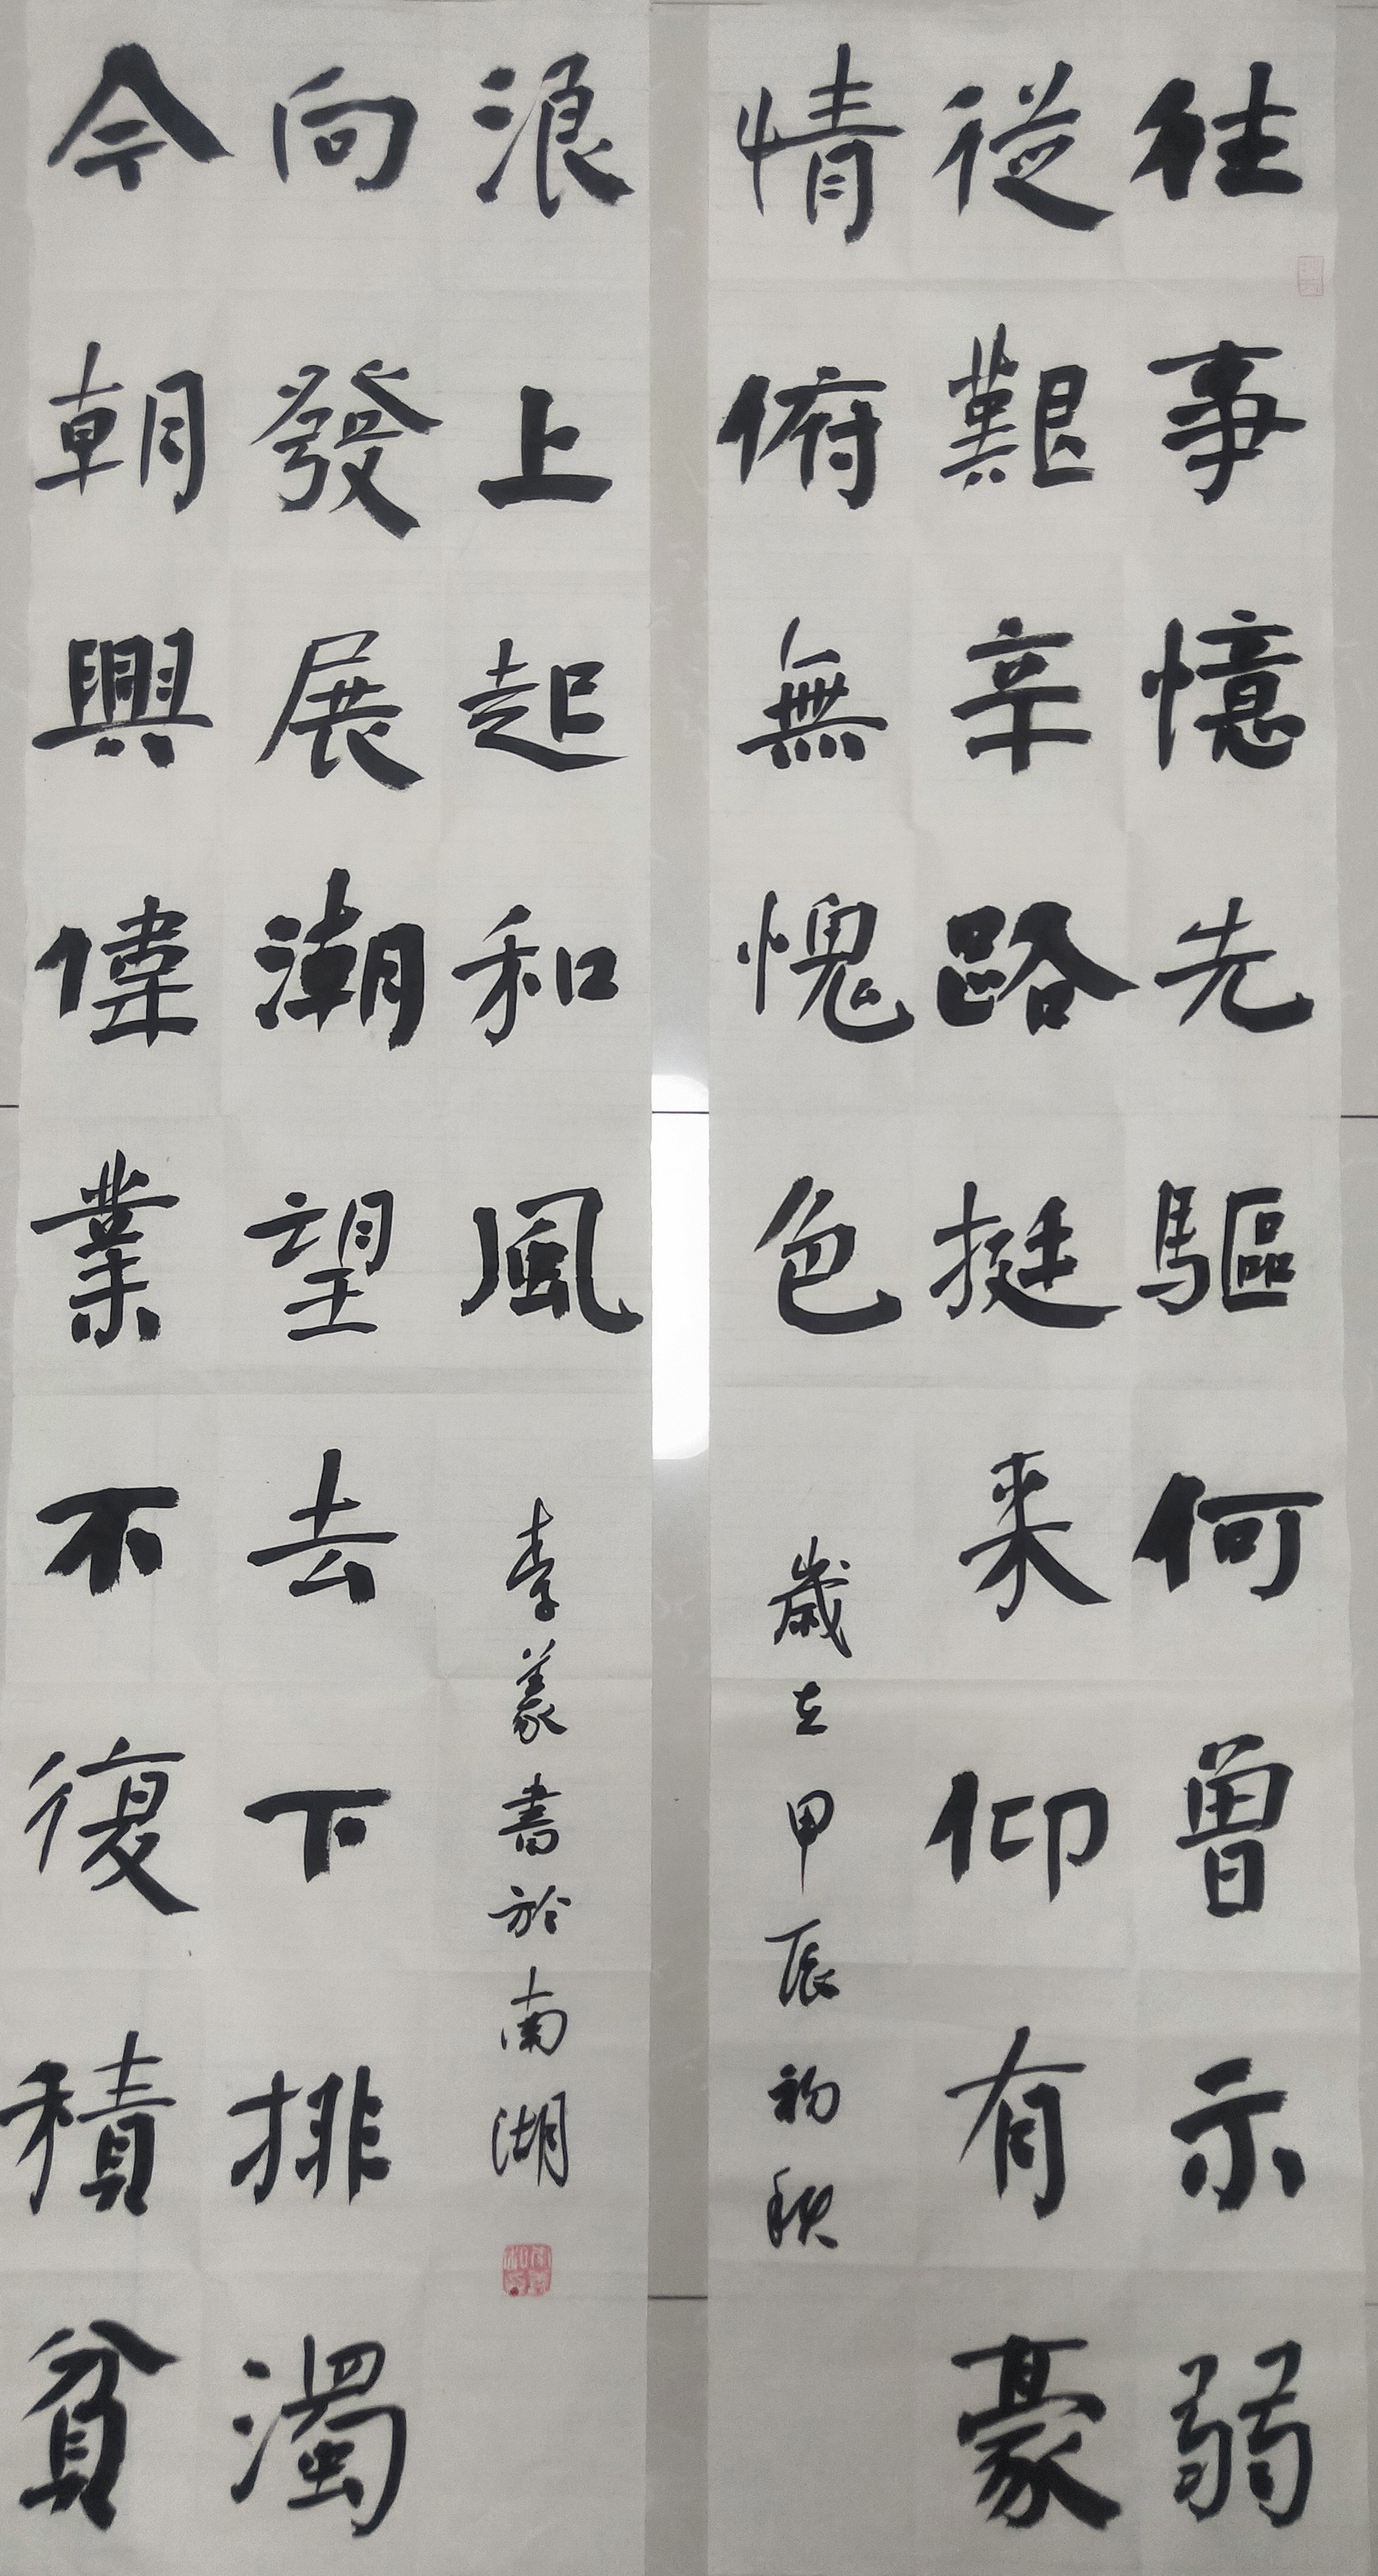 往事憶先驅何曾示弱
從艱辛路挺来仰有豪
情俯無愧色
歲在甲辰初秋
今朝興偉業不復積貧
向發展潮望去下排濁
浪上起和風
李義書於南湖